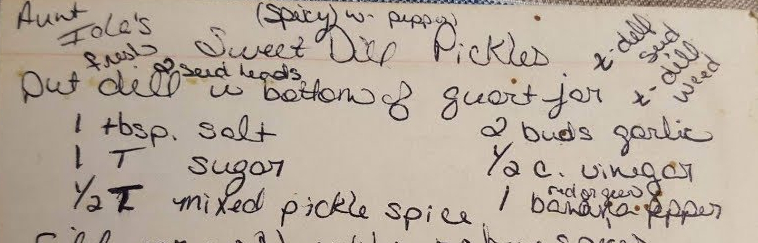 Aunt Iola's
(spicy) w. pepper
Sweet Dill Pickles
x-dill seed
x-dill weed
Put fresh dill 2 seed heads in bottom of quart jar
1 tbsp. salt
2 buds garlic
1 T sugar
1/2 c. vinegar
1/2 T mixed pickle spice
1 red or green banana pepper